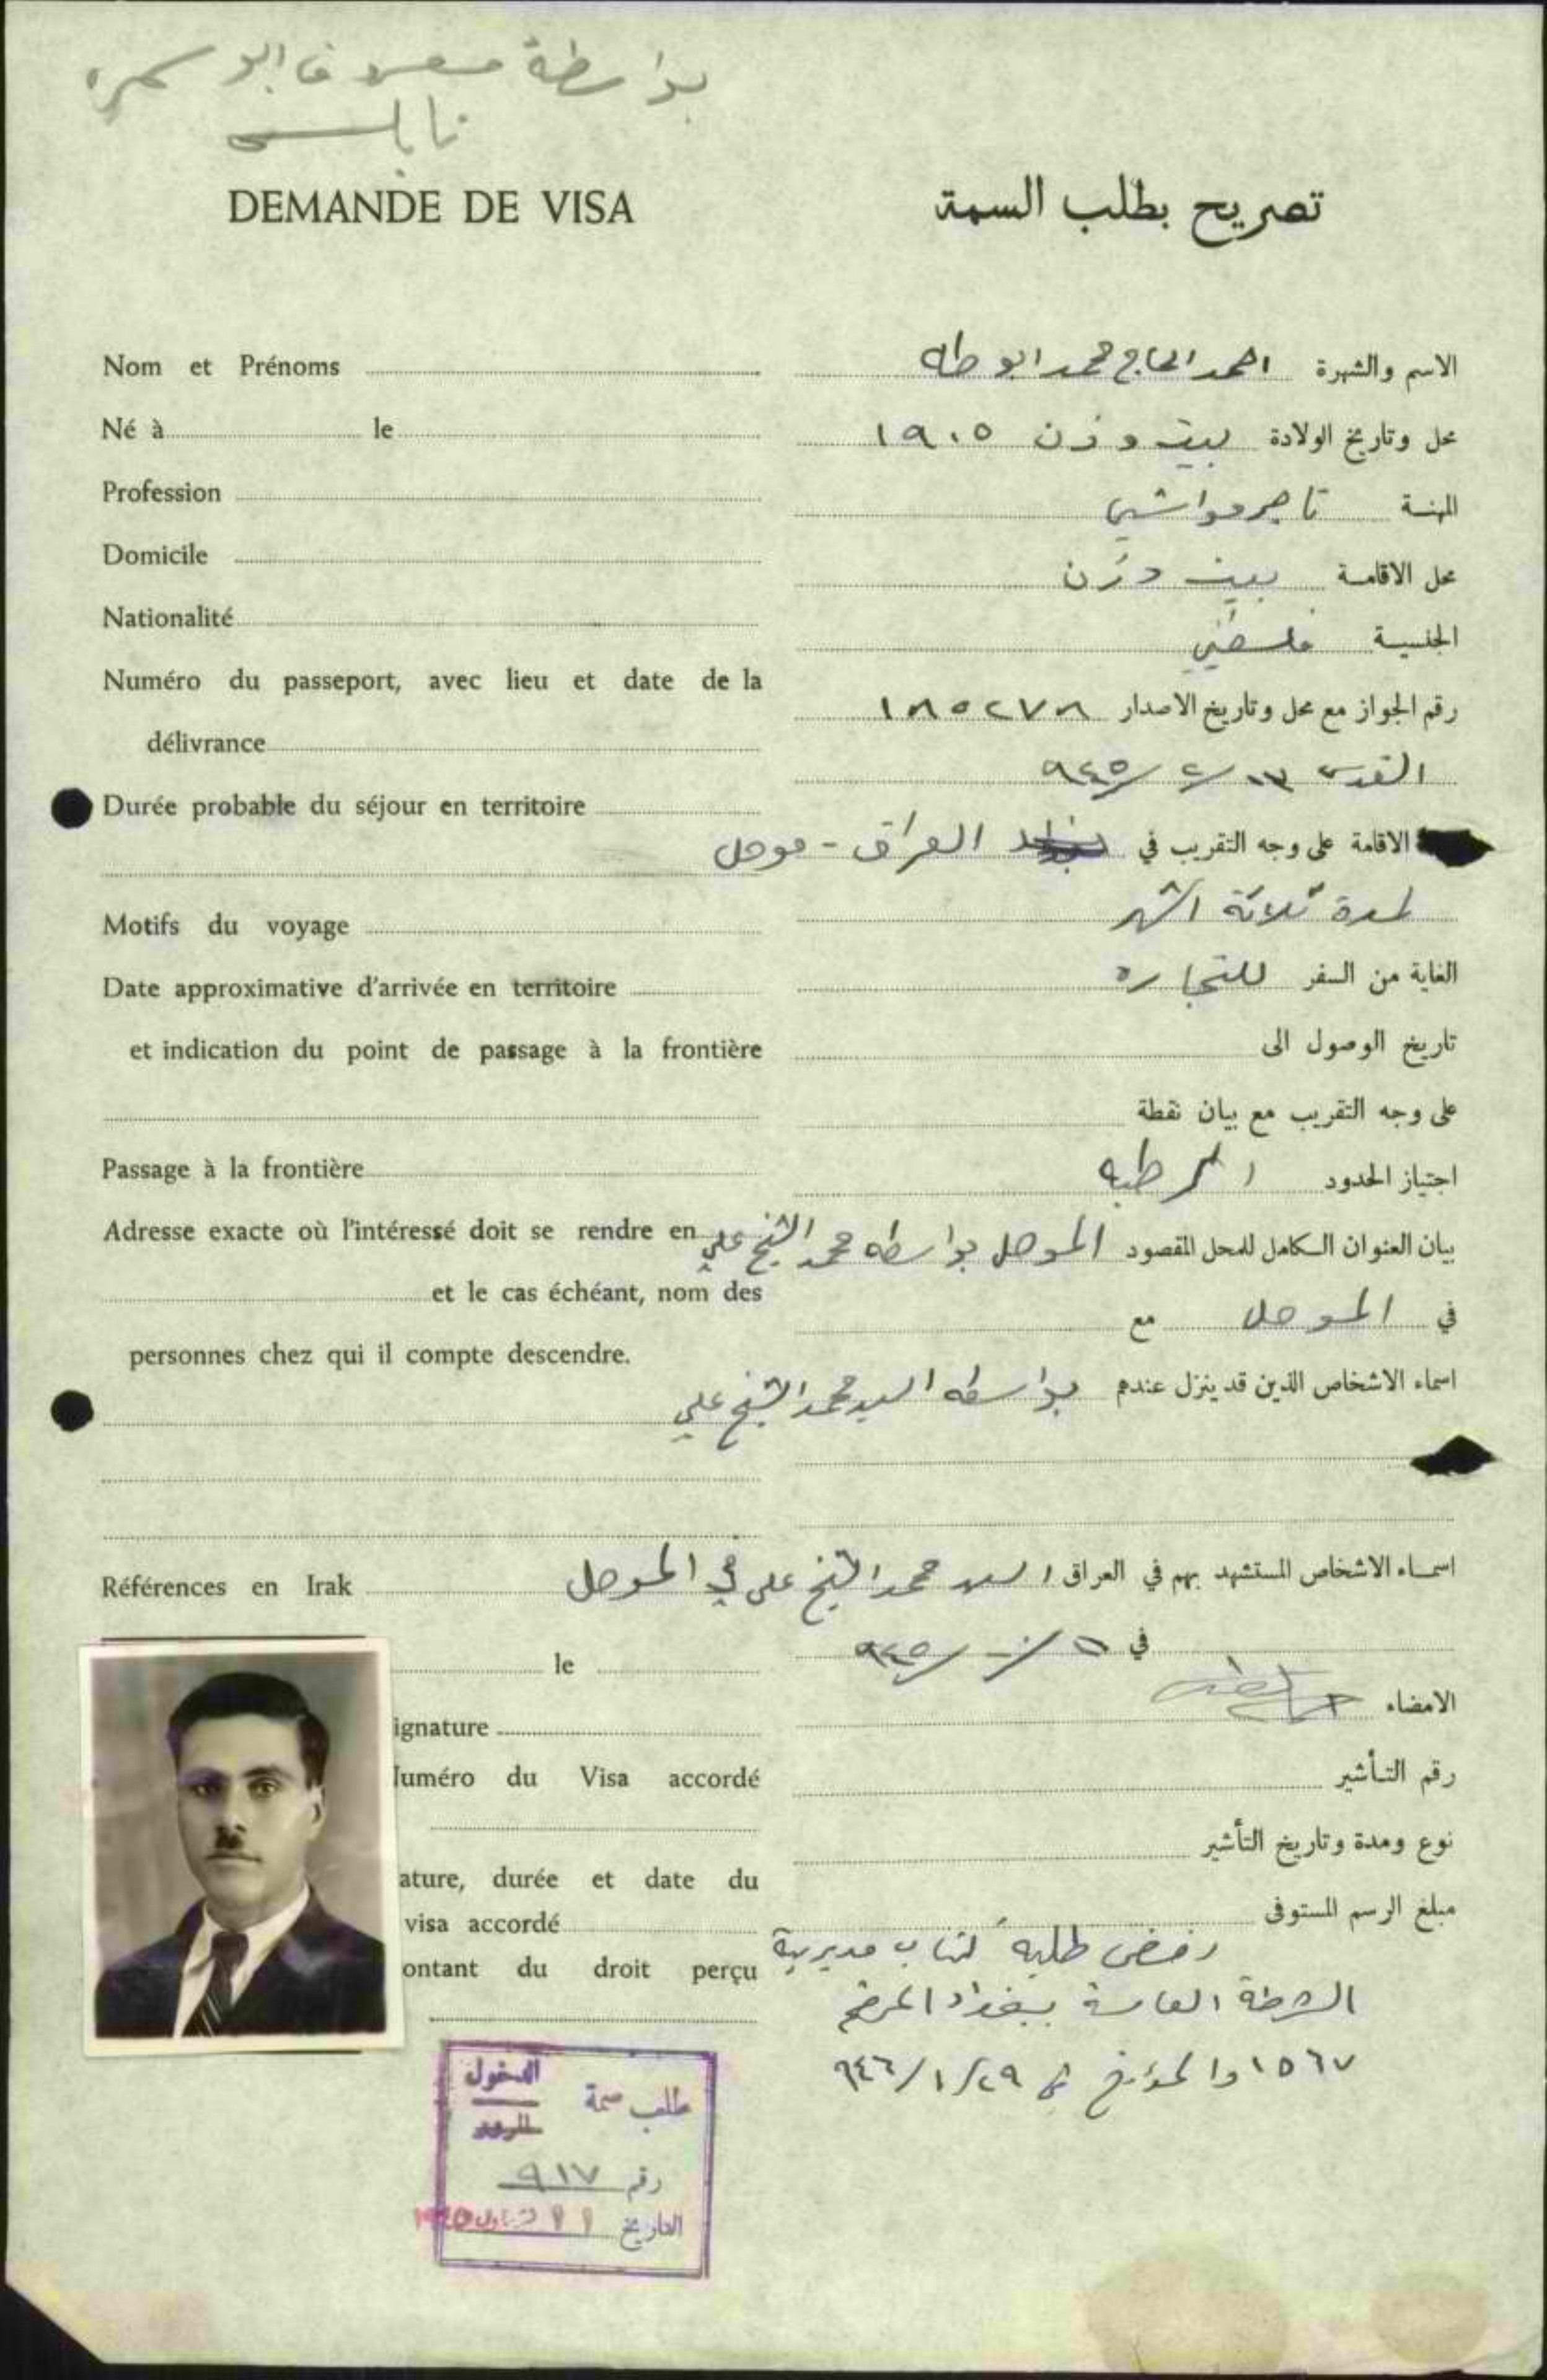 بواسطة معروف ابو سمره
نابلس
DEMANDE DE VISA
تصريح بطلب السمة
Nom et Prénoms
الاسم والشهرة احمد الحاج محمد ابو طه
Né à le
محل وتاريخ الولادة بيت وزن ١٩٠٥
Profession
المهنسة تاجر مواشي
Domicile
محل الاقامسة بيت وزن
Nationalité
الجنسيسة فلسطيني
Numéro du passeport, avec lieu et date de la
délivrance
رقم الجواز مع محل وتاريخ الاصدار ١٨٥٢٧٨
القدس ٩٤٥
Durée probable du séjour en territoire
الاقامة على وجه التقريب في العراق - موصل
لمدة ثلاثة اشهر
Motifs du voyage
الغاية من السفر للتجاره
Date approximative d'arrivée en territoire
et indication du point de passage à la frontière
تاريخ الوصول الى
على وجه التقريب مع بيان نقطة
Passage à la frontière
اجتياز الحدود الرطبه
Adresse exacte où l'intéressé doit se rendre en
et le cas échéant, nom des
personnes chez qui il compte descendre.
بيان العنوان الكامل للمحل المقصود الموصل بواسطه محمد الشيخ علي
في الموصل مع
اسماء الاشخاص الذين قد ينزل عندهم بواسطه السيد محمد الشيخ علي
Références en Irak
اسماء الاشخاص المستشهد بهم في العراق السيد محمد الشيخ علي في الموصل
le
في ١١/١٠/٩٤٥
ignature
الامضاء
uméro du Visa accordé
رقم التأشير
نوع ومدة وتاريخ التأشير
ature, durée et date du
visa accordé
مبلغ الرسم المستوفى
ontant du droit perçu
رفض طلبه كتاب مديرية
الشرطة العامة ببغداد المرقم
١٥٦٧ والمؤرخ في ٢٩/١/٩٤٦
طلب سمة الدخول
المرور
رقم ٩١٧
التاريخ ١١